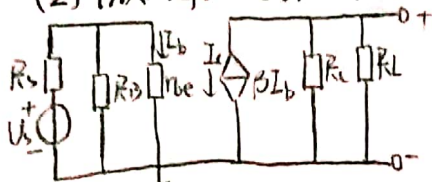 (2)
Rs
+
Us
-
RB
Ib
rbe
Ic
βIb
Rc
RL
+
-